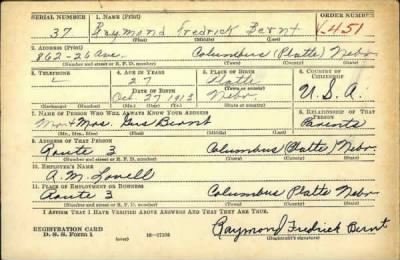 SERIAL NUMBER 1. NAME (Print) ORDER NUMBER
37 Raymond Fredrick Bernt V451
(First) (Middle) (Last)
2. ADDRESS (Print)
862-26 Ave. Columbus (Platte) Nebr
(Number and street or R. F. D. number) (Town) (County) (State)
3. TELEPHONE 4. AGE IN YEARS 5. PLACE OF BIRTH 6. COUNTRY OF CITIZENSHIP
27 Platte
DATE OF BIRTH (Town) (County)
Oct 27 1913 Nebr U.S.A.
(Exchange) (Number) (Mo.) (Day) (Yr.) (State or country)
7. NAME OF PERSON WHO WILL ALWAYS KNOW YOUR ADDRESS 8. RELATIONSHIP OF THAT PERSON
Mr & Mrs. Bernt Parents
(Mr., Mrs., Miss) (First) (Middle) (Last)
9. ADDRESS OF THAT PERSON
Route 3 Columbus (Platte) Nebr.
(Number and street or R. F. D. number) (Town) (County) (State)
10. EMPLOYER'S NAME
A. M. Lovell
11. PLACE OF EMPLOYMENT OR BUSINESS
Route 3 Columbus Platte Nebr
(Number and street or R. F. D. number) (Town) (County) (State)
I AFFIRM THAT I HAVE VERIFIED ABOVE ANSWERS AND THAT THEY ARE TRUE.
REGISTRATION CARD
D. S. S. Form 1 (over) 16-17105 Raymond Fredrick Bernt
(Registrant's signature)